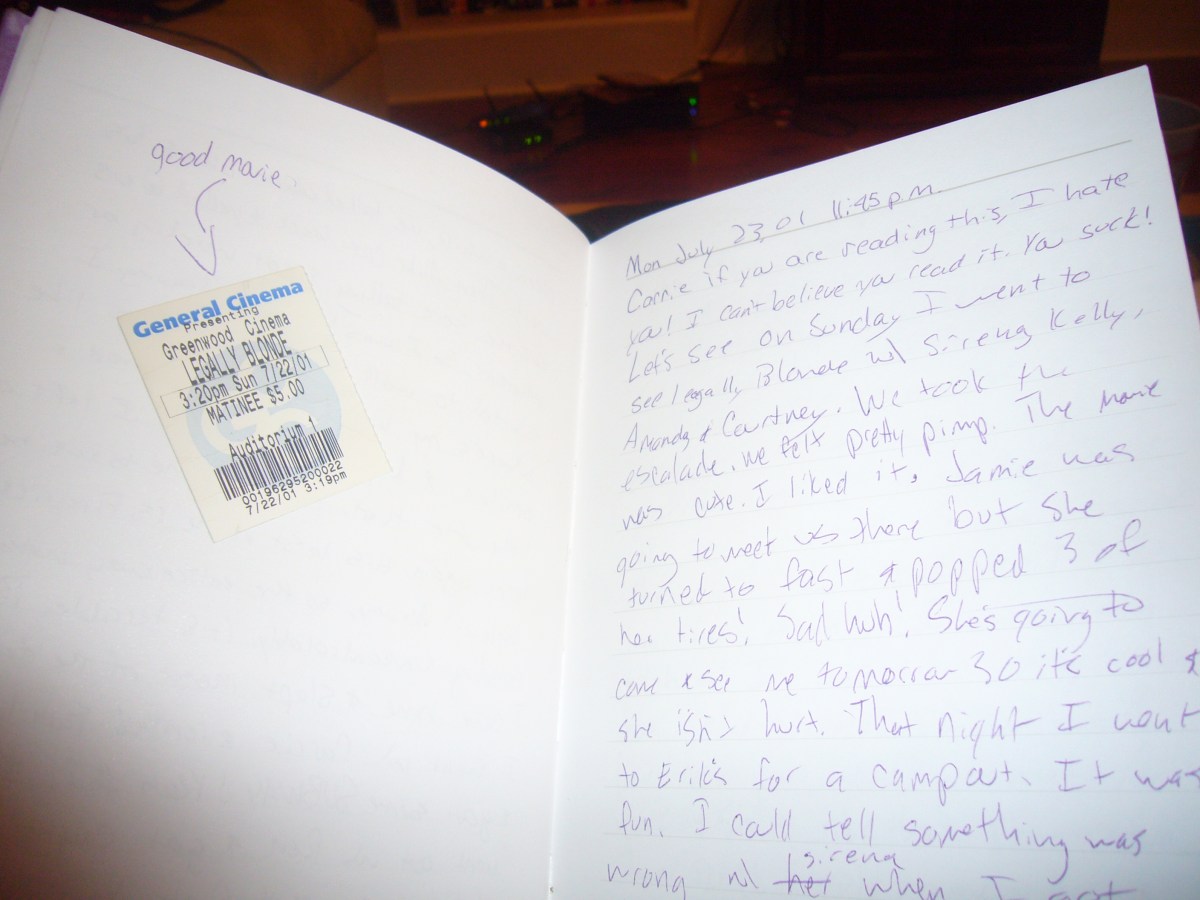 good movie
General Cinema
Presenting
Greenwood Cinema
LEGALLY BLONDE
3:20pm Sun 7/22/01
MATINEE $5.00
Auditorium 1
00196295200022
7/22/01 3:19pm
Mon July 23, 01 11:45 p.m.
Corrie if you are reading this, I hate
you! I can't believe you read it. You suck!
Let's see on Sunday I went to
see legally Blonde w/ Sireng, Kelly,
Amanda & Courtney. We took the
escalade. we felt pretty pimp. The movie
was cute. I liked it. Jamie was
going to meet us there but she
turned to fast & popped 3 of
her tires! Sad huh! She's going to
come & see me tomorrow so it's cool &
she isn't hurt. That night I went
to Erik's for a campout. It was
fun. I could tell something was
wrong w/ her sireng when I got